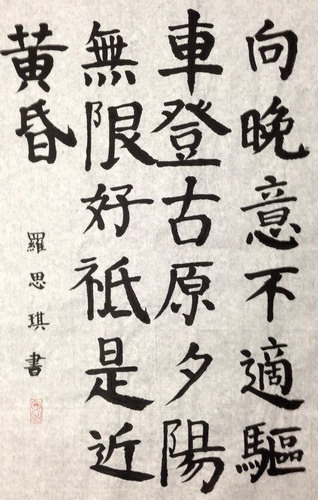 向晚意不適驅
車登古原夕陽
無限好祗是近
黃昏
羅思琪書